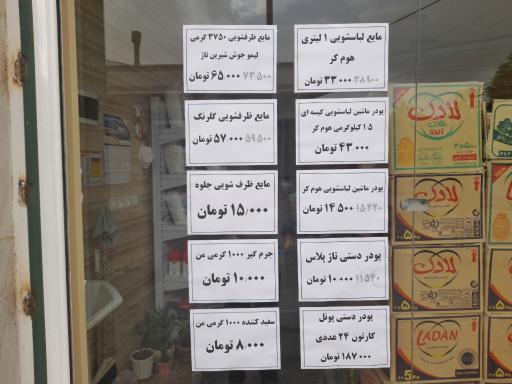 مایع لباسشویی ۱ لیتری
هوم کر
۳۸۹۰۰ ۳۳۰۰۰ تومان
پودر ماشین لباسشویی کیسه ای
۱.۵ کیلوگرمی هوم کر
۴۳۰۰۰ تومان
پودر ماشین لباسشویی هوم کر
۱۵۴۲۰ ۱۴.۵۰۰ تومان
پودر دستی تاژ پلاس
۱۱۵۴۰ ۱۰.۰۰۰ تومان
پودر دستی پونل
کارتون ۲۴ عددی
۱۸۷۰۰۰ تومان
مایع ظرفشویی ۳۷۵۰ گرمی
لیمو جوش شیرین تاژ
۷۳.۵۰۰ ۶۵.۰۰۰ تومان
مایع ظرفشویی گلرنگ
۵۹.۵۰۰ ۵۷.۰۰۰ تومان
مایع ظرف شویی جلوه
۱۵/۰۰۰ تومان
جرم گیر ۱۰۰۰ گرمی من
۱۰.۰۰۰ تومان
سفید کننده ۱۰۰۰ گرمی من
۸.۰۰۰ تومان
لادن
لادن
لادن
LADAN
5KG